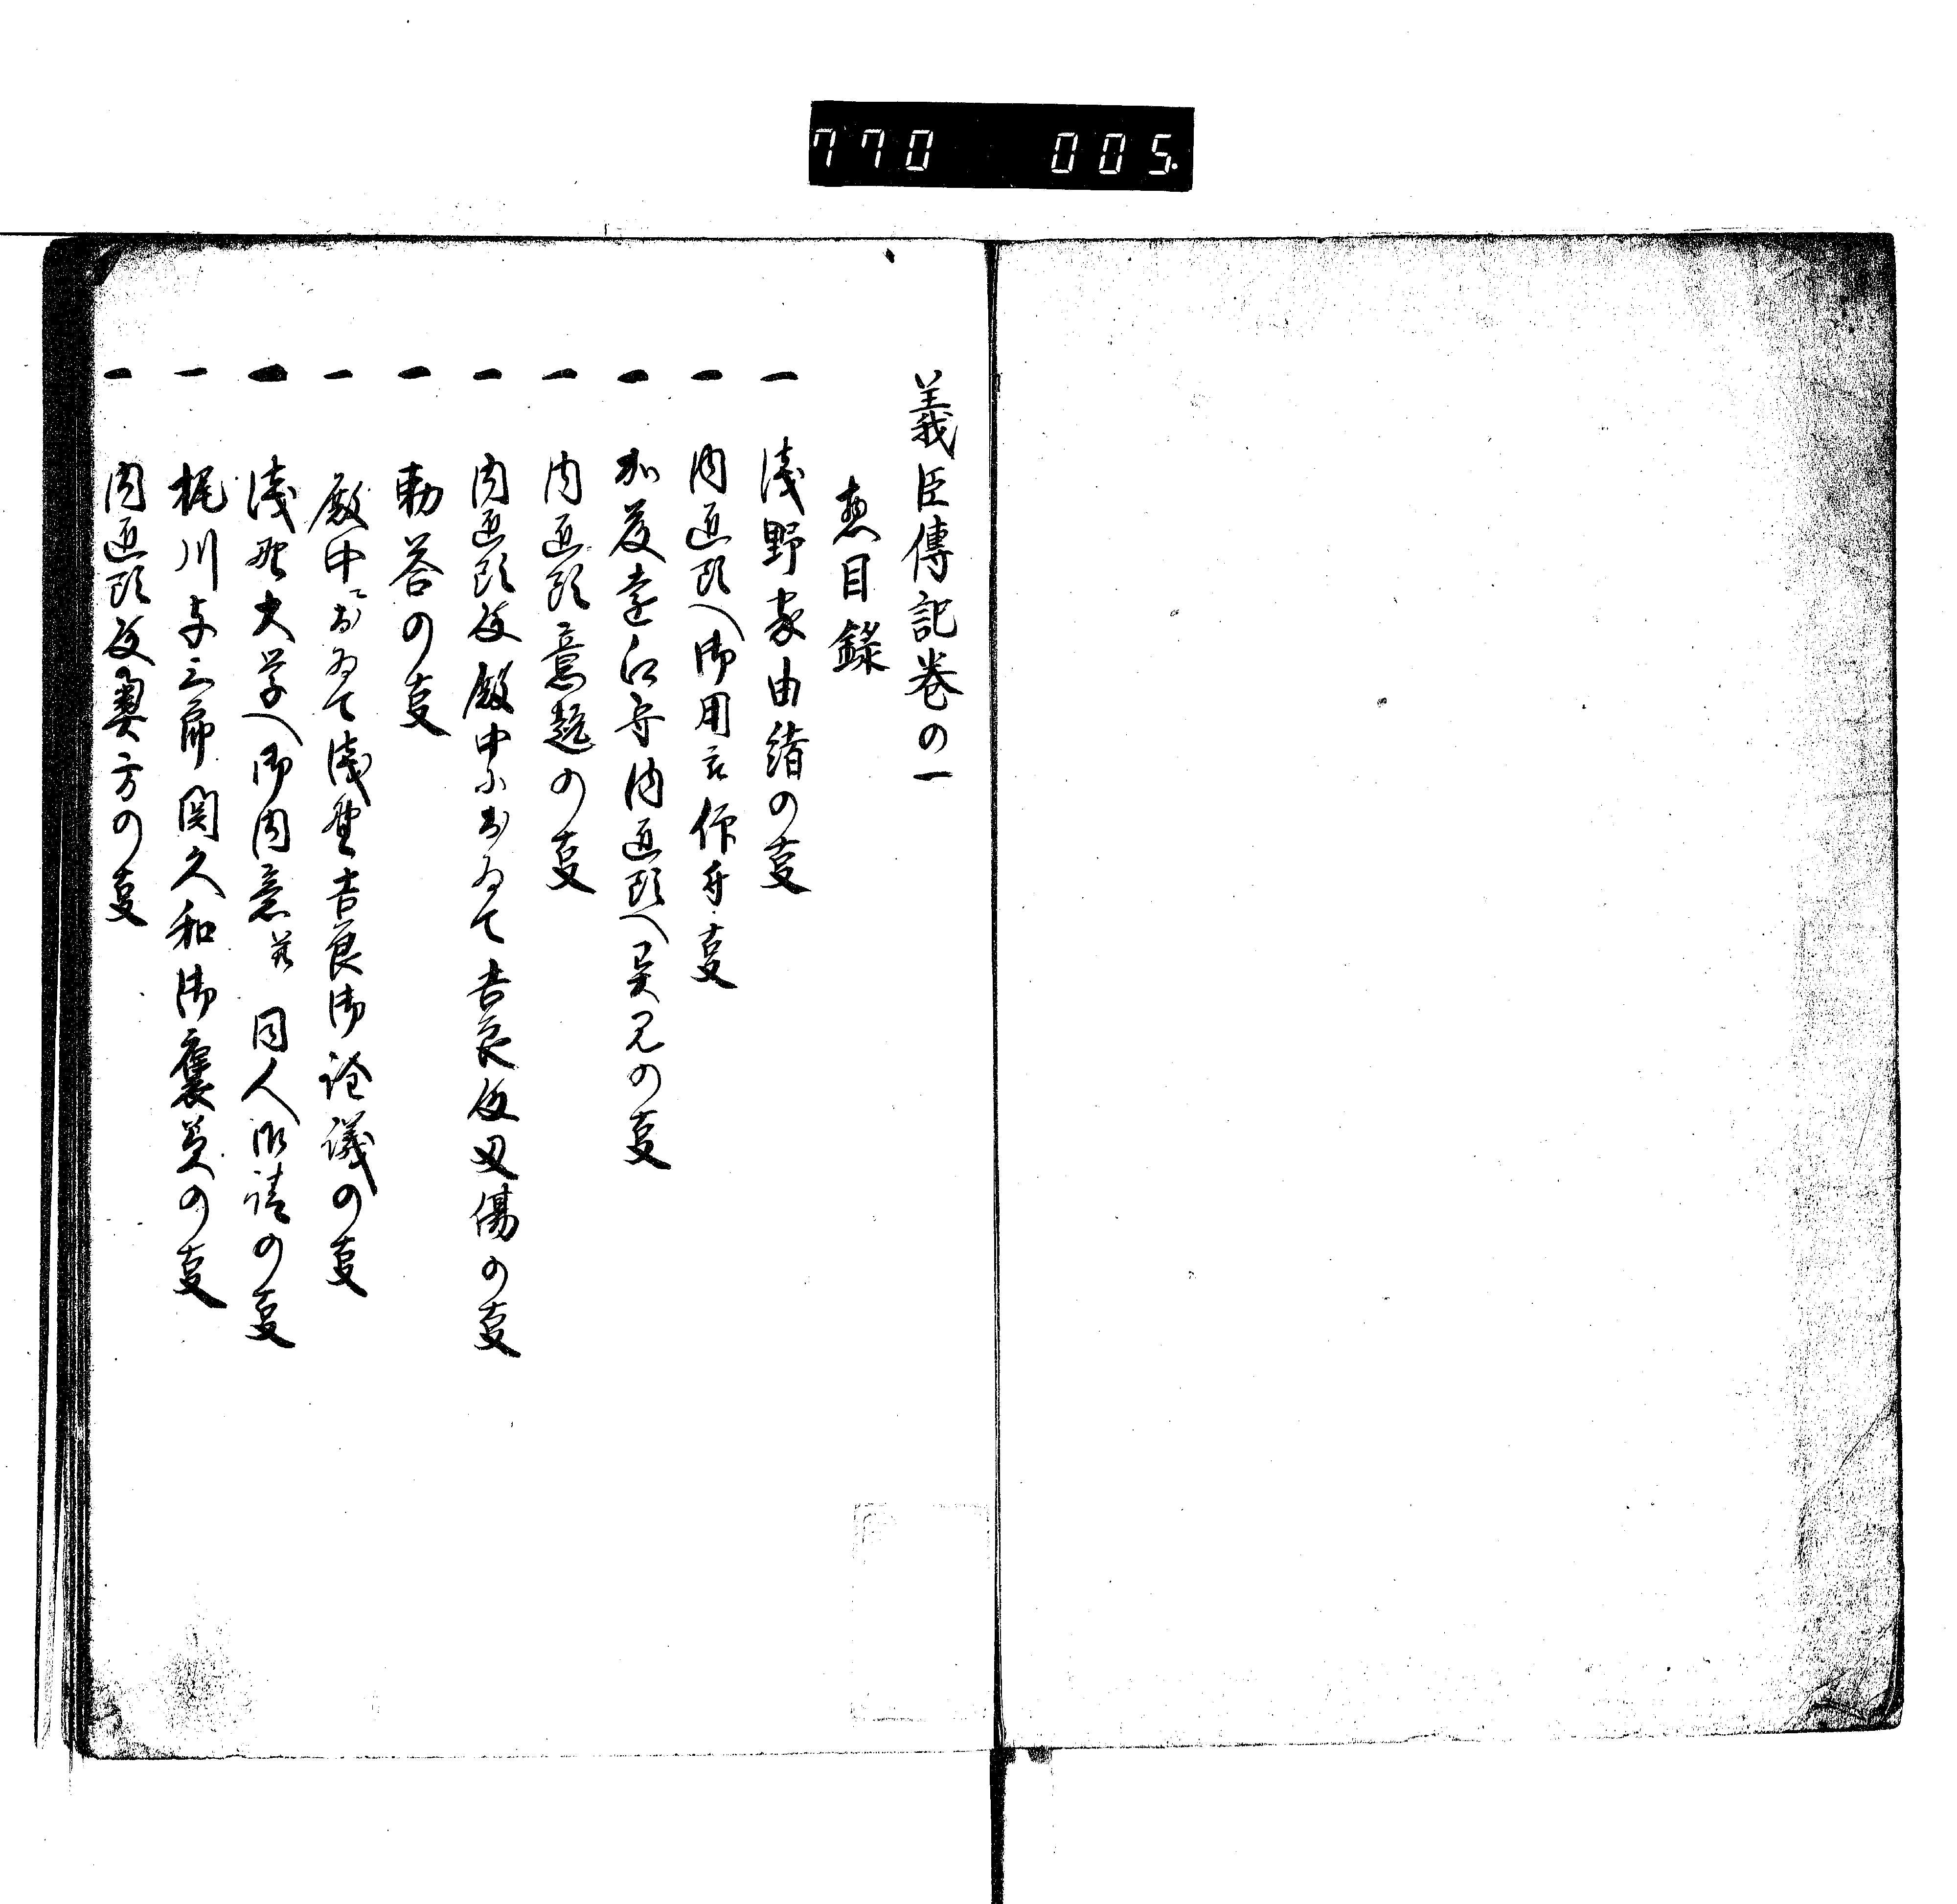 770 005
義臣傳記巻の一
惣目録
一 浅野家由緒の事
一 内匠頭へ御用被仰付事
一 加藤遠江守内匠頭へ異見の事
一 内匠頭意趣の事
一 内匠頭殿殿中におゐて吉良殿刃傷の事
一 勅答の事
一 殿中におゐて浅野吉良御詮議の事
一 浅野大学へ御内意并同人御請の事
一 梶川与三郎関久和御褒美の事
一 内匠頭殿奥方の事